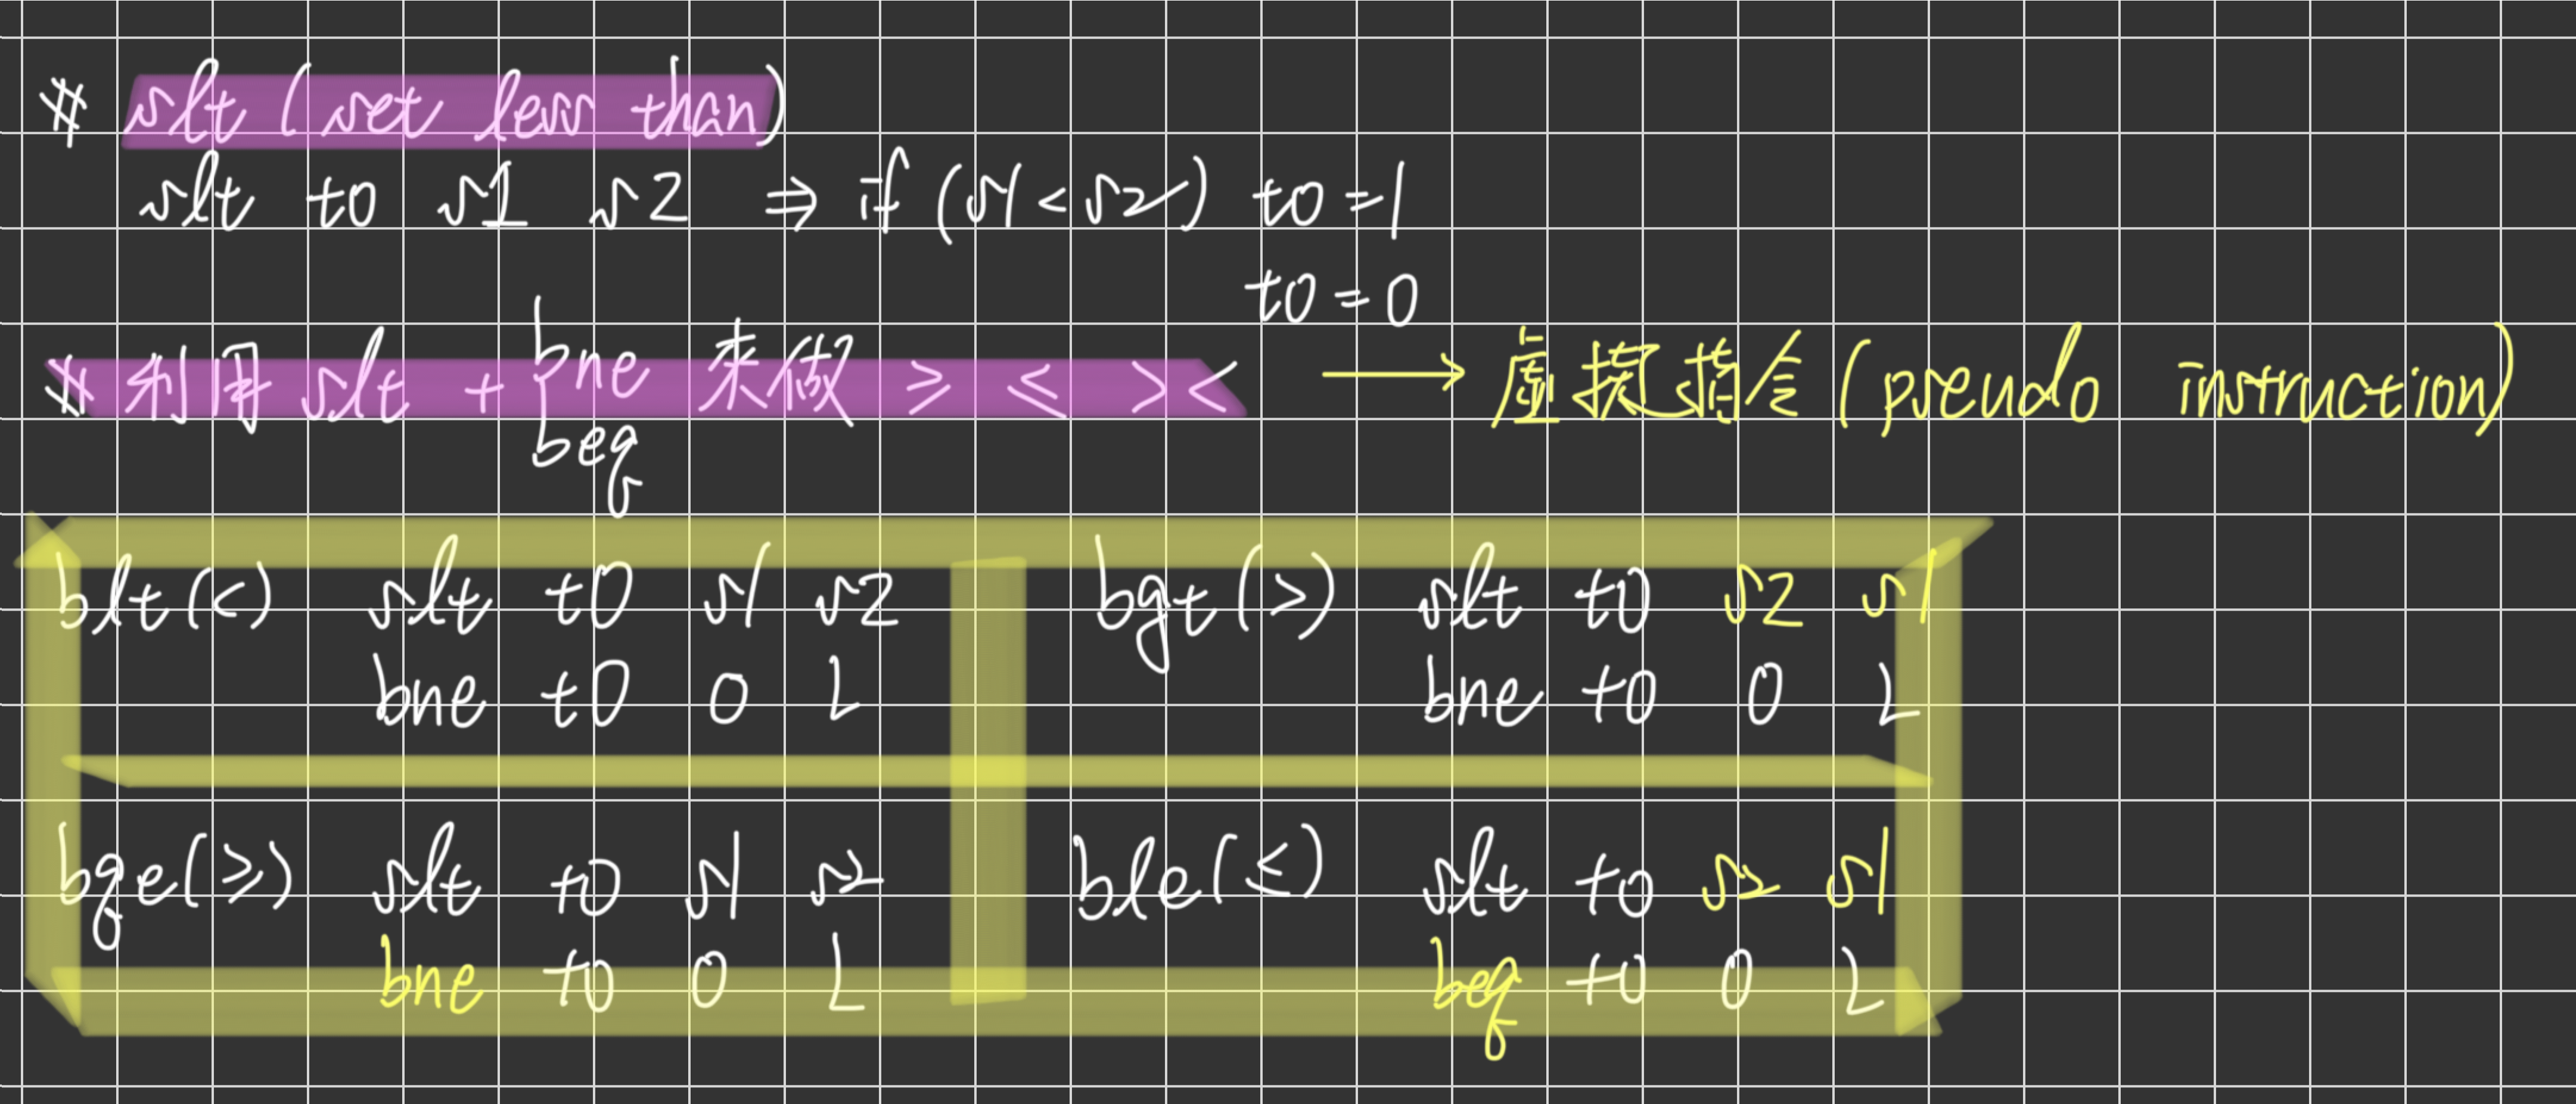 # slt (set less than)
slt t0 s1 s2 ⇒ if (s1 < s2) t0 = 1
t0 = 0
* 利用 slt + bne 來做 ≥ ≤ > < → 虛擬指令 (pseudo instruction)
beq
blt(<) slt t0 s1 s2
bne t0 0 L
bgt(>) slt t0 s2 s1
bne t0 0 L
bge(≥) slt t0 s1 s2
bne t0 0 L
ble(≤) slt t0 s2 s1
beq t0 0 L